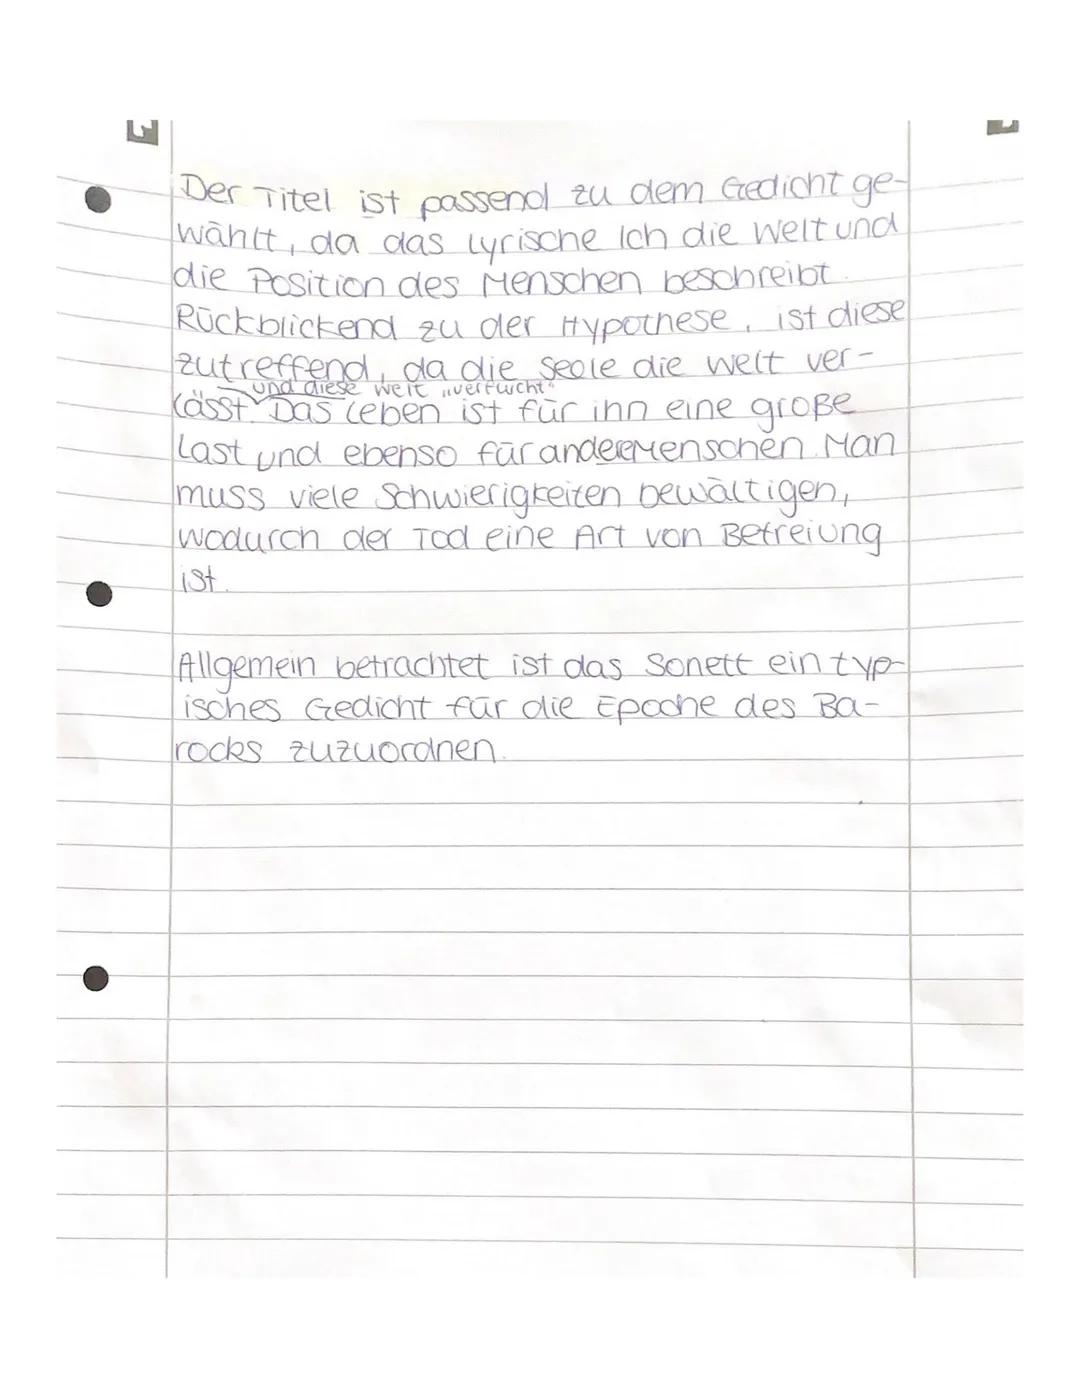 Der Titel ist passend zu dem Gedicht ge-
wählt, da das lyrische Ich die Welt und
die Position des Menschen beschreibt.
Rückblickend zu der Hypothese, ist diese
zutreffend, da die Seele die Welt ver-
und diese Welt „verflucht“
lässt. Das Leben ist für ihn eine große
Last und ebenso für andere Menschen. Man
muss viele Schwierigkeiten bewältigen,
wodurch der Tod eine Art von Befreiung
ist.
Allgemein betrachtet ist das Sonett ein typ-
isches Gedicht für die Epoche des Ba-
rocks zuzuordnen.